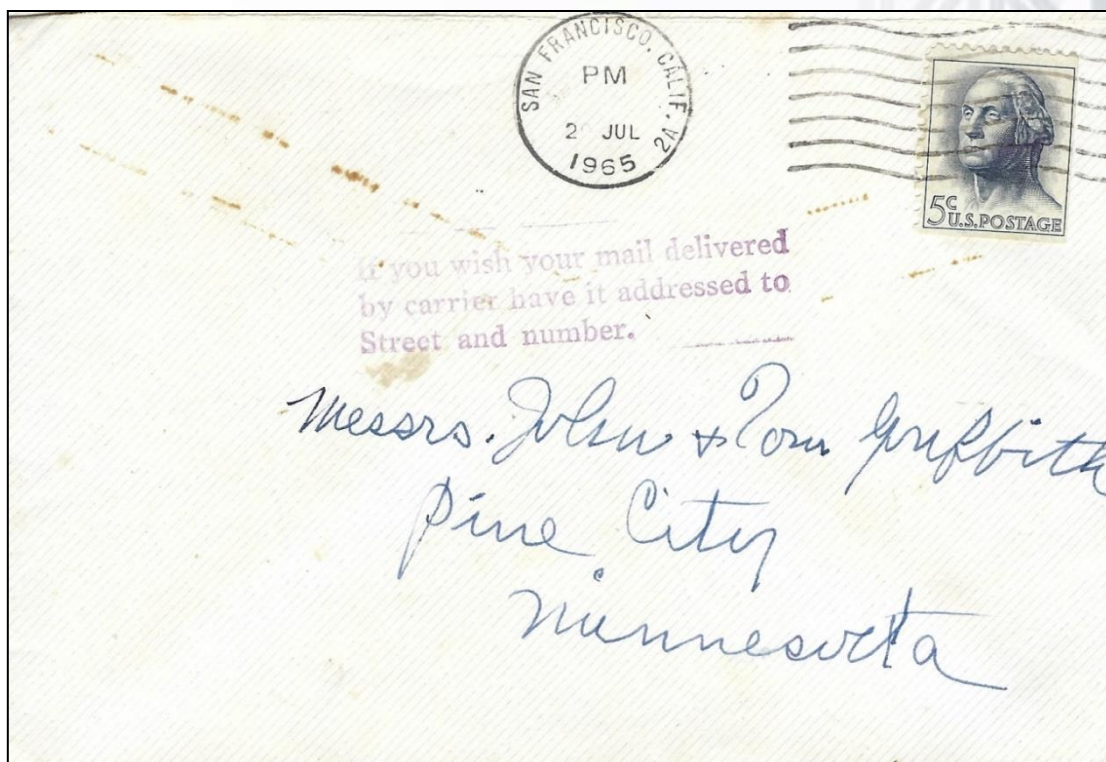 SAN FRANCISCO, CALIF. 2A
PM
JUL
1965
5c
U.S.POSTAGE
If you wish your mail delivered
by carrier have it addressed to
Street and number.
Messrs. John & Tom Griffith
Pine City
Minnesota